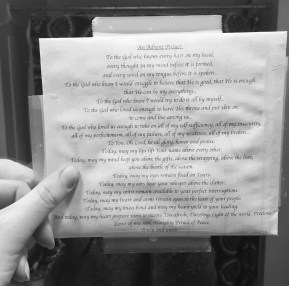 An Advent Prayer
To the God who knows every hair on my head,
every thought in my mind before it is formed,
and every word on my tongue before it is spoken...
To the God who knew I would struggle to believe that He is good, that He is enough,
that He can be my everything...
To the God who knew I would try to do it all by myself...
To the God who loved us enough to leave His throne and put skin on
to come and live among us...
To the God who loved us enough to take on all of my self-sufficiency, all of my insecurity,
all of my perfectionism, all of my failure, all of my weakness, all of my
To You, Oh Lord, be all glory, honor and praise.
Today, may my lips lift Your name above every other.
Today, may my mind keep you above the gifts, above the wrapping, above the
above the bustle of the season.
Today, may my eyes remain fixed on Yours.
Today, may my ears hear your whisper above the clatter.
Today, may my spirit remain available to your perfect interruptions.
Today, may my heart and arms remain open to the heart of your people.
Today, may my knees bend and may my heart yield to your leading.
And today, may my heart prepare room to receive You afresh, Light of the world, Precious
of my soul, Prince of Peace.